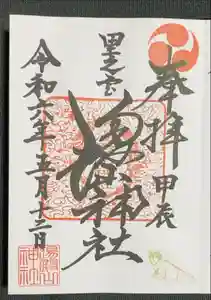 奉拝 甲辰
里之宮
湯殿山神社
令和六年五月十二日